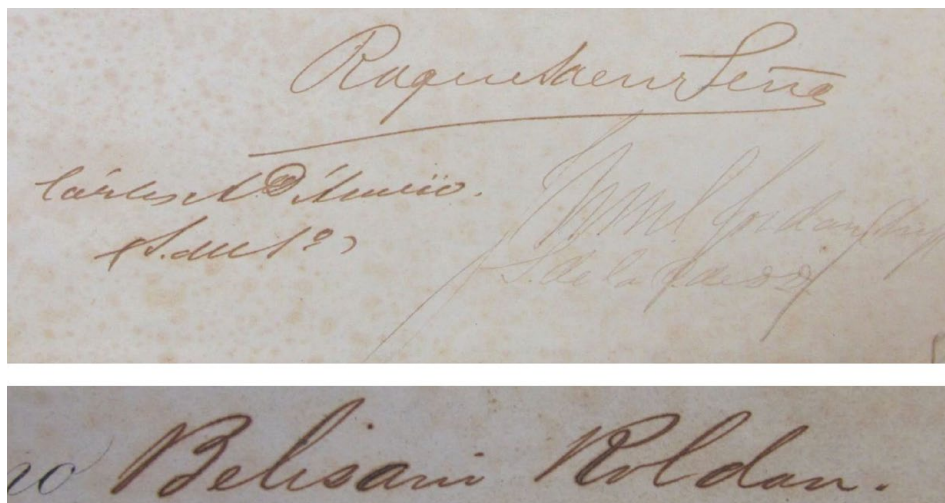 Roque Saenz Peña
Carlos A. D'Amico.
(S. del S.)
S. de la C. de DD
no Belisario Roldan.